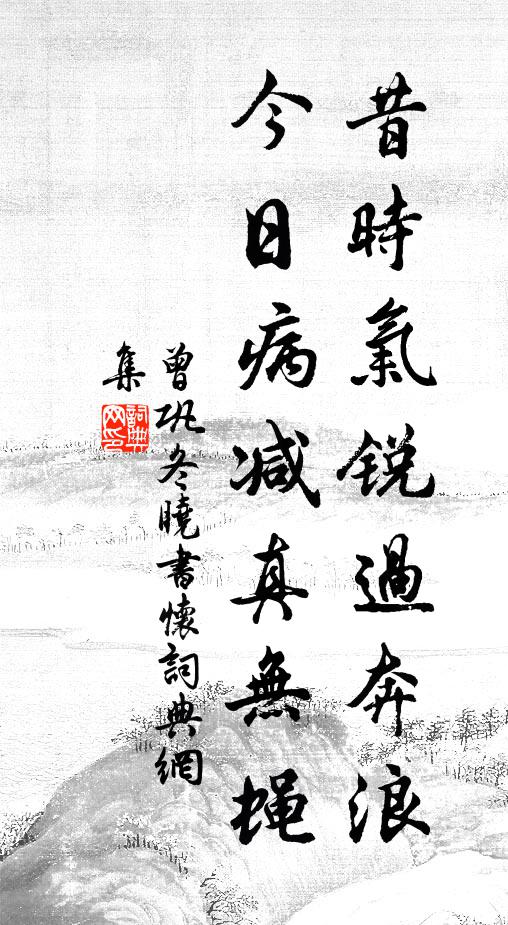 昔時氣銳過奔浪
今日病减真無蝇
曾巩冬曉書懷詞典網
集
詞典網印